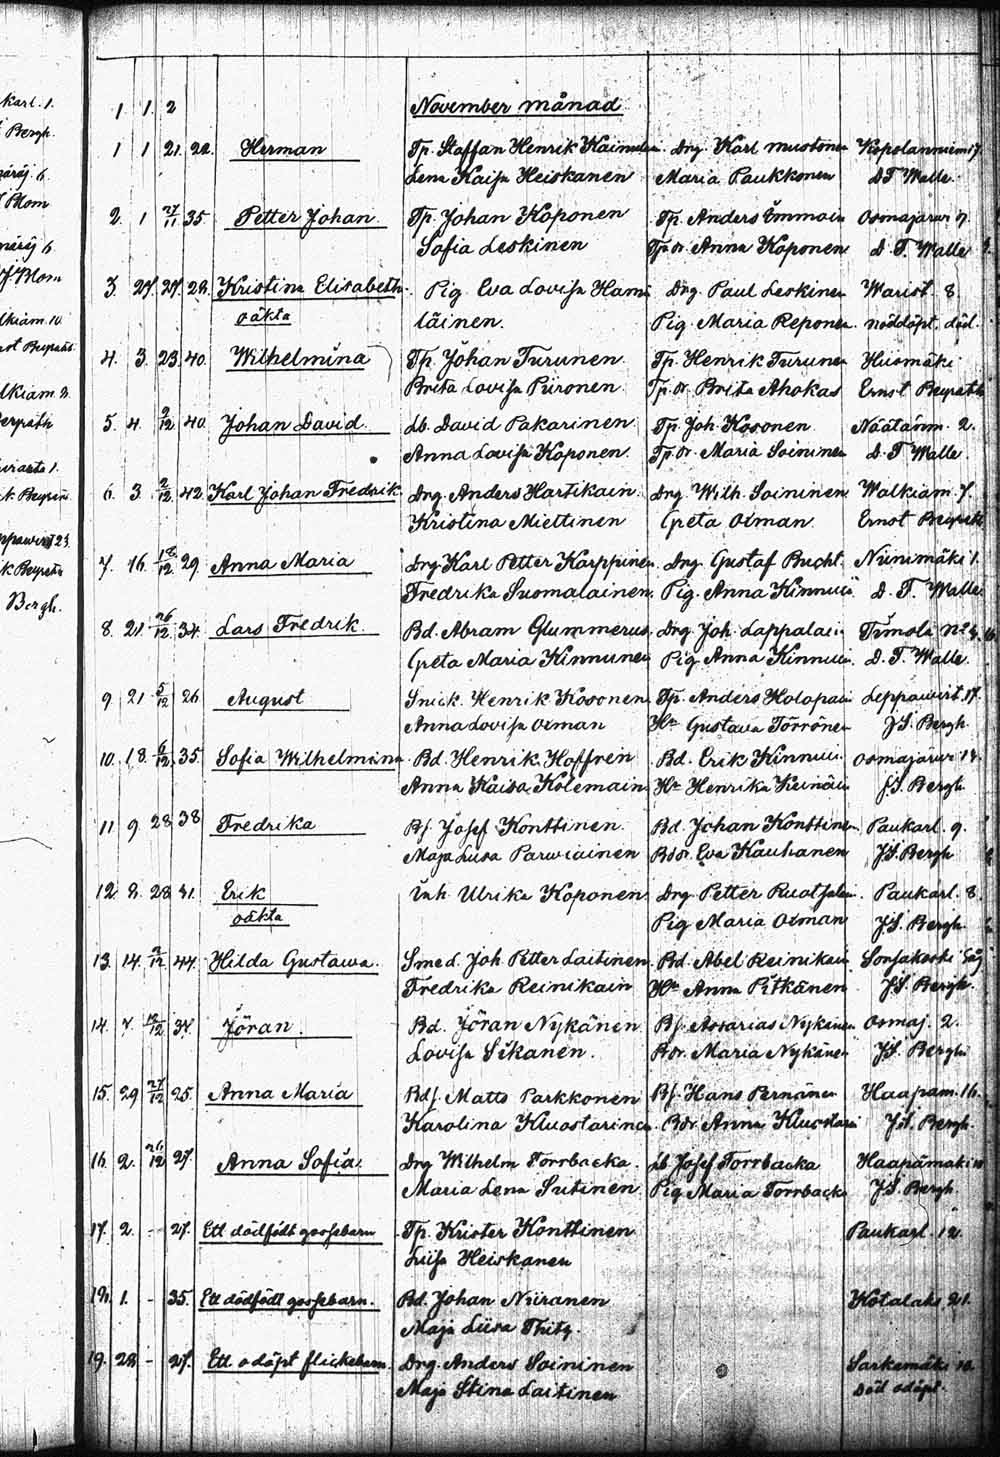 karl. 1.
1 1. 2 November månad
Bergh.
1 1 21. 22. Herman Tp. Staffan Henrik Kainulain Drg. Karl Mustonen Kopolanniem 17.
Lena Kaisa Heiskanen Maria Paukkonen D T Walle.
Blom
2. 1 27/11 35. Petter Johan. Tp. Johan Koponen Tp. Anders Immoin Osmajärwi 7.
Sofia Leskinen Tp. dr. Anna Koponen D. T. Walle
Blom
3. 27. 27. 28. Kristina Elisabeth. Pig. Eva Lovisa Hama Drg. Paul Leskinen Warist. 8.
oäkta läinen. Pig Maria Reponen. nöddöpt. död.
lkiam. 10.
4. 3. 23. 40. Wilhelmina Tp. Johan Turunen Tp. Henrik Turunen Husmäki
Brita Lovisa Piironen. Tp. dr. Brita Ahokas Ernst Beyrath
5. 4. 2/12 40. Johan David. Lb. David Pakarinen Tp. Joh. Kosonen Näätänm. 2.
Anna Lovisa Koponen. Tp. dr. Maria Soininen D. T. Walle.
6. 3. 2/12 42. Karl Johan Fredrik. Drg. Anders Hartikain. Drg. Wilh. Soininen Walkiam. 7.
Kristina Miettinen Greta Otman Ernst Beyrath
7. 16. 18/12 29. Anna Maria Drg Karl Petter Karppinen. Drg. Gustaf Bucht. Niinimäki 1.
Bergh. Fredrika Suomalainen. Pig. Anna Kinnui D. T. Walle.
8. 21. 26/12 34. Lars Fredrik. Bd. Abram Glummerus. Drg Joh. Lappalai Timola No 4.
Greta Maria Kinnunen Pig Anna Kinnui D. T. Walle.
9. 21. 5/12 26. August Snick. Henrik Kosonen Tp. Anders Holopai Leppawirt. 17.
Anna Lovisa Otman Hu Gustava Törrönen J. S. Bergh.
10. 18. 6/12 35. Sofia Wilhelmina Bd. Henrik Hoffren Bd. Erik Kinnui. Osmajärwi 14.
Anna Kaisa Kolemain. Hu Henrika Keinäin J. S. Bergh.
11. 9. 28. 38 Fredrika Bf. Josef Konttinen. Bd. Johan Konttinen Paukarl. 9.
Maja Lusa Parwiainen Bdr. Eva Kauhanen J. S. Bergh
12. 8. 28. 31. Erik Inh. Ulrika Koponen Drg Petter Ruotsalain. Paukarl. 8.
oäkta Pig Maria Otman J. S. Bergh.
13. 14. 2/12 44. Hilda Gustawa. Smed. Joh. Petter Laitinen. Bd. Abel Reinikain Sorsakoski Såg
Fredrika Reinikain Hu Anna Pitkänen J. S. Bergh.
14. 7. 12/12 34. Jöran. Bd. Jöran Nykänen Bf. Assarias Nykänen Osmaj. 2.
Lovisa Sikanen. Bdr. Maria Nykänen J. S. Bergh
15. 29 27/12 25. Anna Maria Bdf. Matts Parkkonen Bf. Hans Pernänen Haapam. 16.
Karolina Kluostarinen. Bdr. Anna Kluostari J. S. Bergh.
16. 2. 26/12 27. Anna Sofia. Drg Wilhelm Torrbacka. Lb Josef Torrbacka Haapamäki
Maria Lena Sutinen. Pig Maria Torrbacka J. S. Bergh.
17. 2. - 27. Ett dödfödt gossebarn Tp. Krister Konttinen Paukarl. 12.
Luisa Heiskanen
1. - 35. Ett dödfödt gossebarn. Bd. Johan Niiranen Kotalaks. 21.
Maja Liisa Thitz.
19. 28 - 27. Ett odöpt flickebarn. Drg. Anders Soininen Sarkamäki
Maja Stina Laitinen Död odöpt.